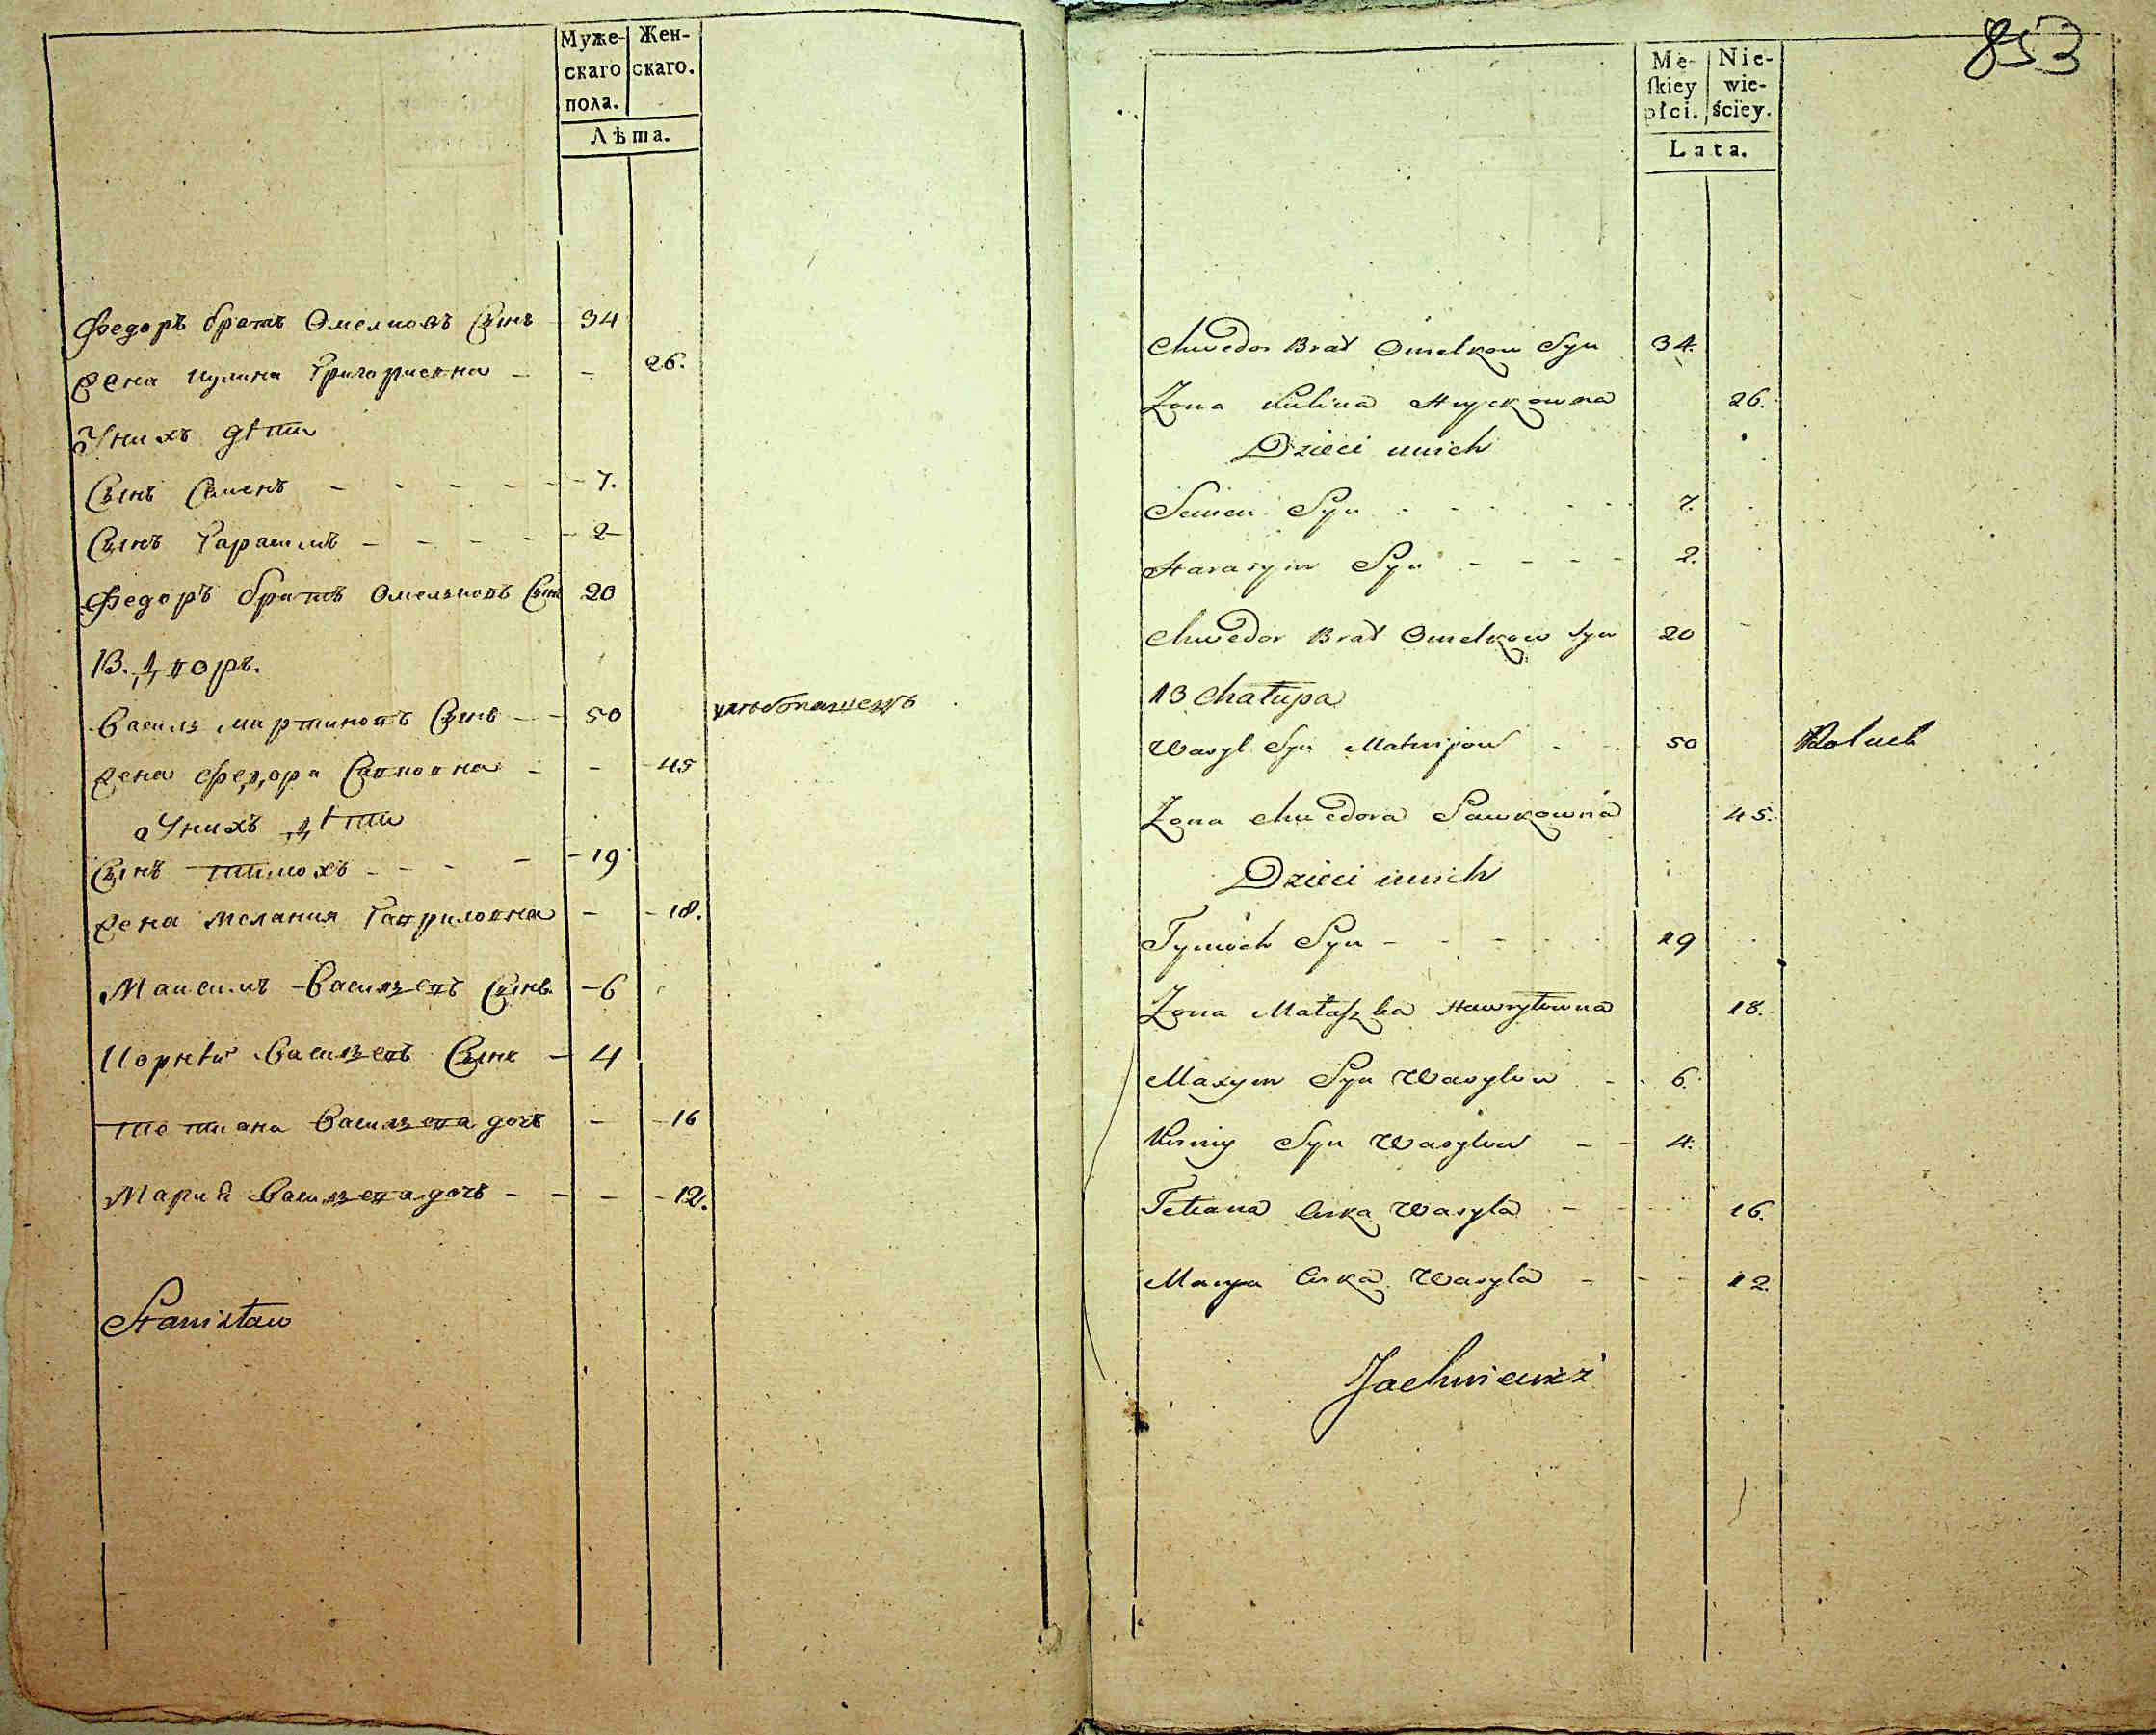 Муже- Жен-
скаго скаго.
пола.
Лѣта.
Федоръ братъ Омелковъ Сынъ - 34
Жена Кулина Григориевна - - 26.
У нихъ дѣти
Сынъ Семенъ - - - - - 7.
Сынъ Гарасимъ - - - - - 2
Федоръ братъ Омельковъ Сынъ 20
13. Дворъ.
Василь Мартиновъ Сынъ - - 50 хлѣбопашецъ
Жена Федора Савковна - - 45
У нихъ дѣти
Сынъ Тимохъ - - - - - 19
Жена Мелания Гавриловна - - 18.
Максимъ Васильевъ Сынъ - 6
Корнѣй Васильевъ Сынъ - 4
Тетиана Васильева дочь - - 16
Мария Васильева дочь - - - - 12.
Stanisław
853
Mę- Nie-
ſkiey wie-
płci. ściey.
Lata.
Chwedor Brat Omelkow Syn 34.
Zona Kulina Hryckowna 26.
Dzieci unich
Semen Syn - - - - - 7.
Harasym Syn - - - - 2.
Chwedor Brat Omelkow Syn 20
13 Chałupa
Wasyl Syn Matwijow - - 50 Rolnik
Zona Chwedora Sawkowna 45.
Dzieci unich
Tymoch Syn - - - - - 19
Zona Małaszka Hawryłowna 18.
Maxym Syn Wasylow - - 6.
Kornij Syn Wasylow - - 4.
Tetiana Curka Wasyla - - - 16.
Marya Curka Wasyla - - - 12.
Jachniewicz